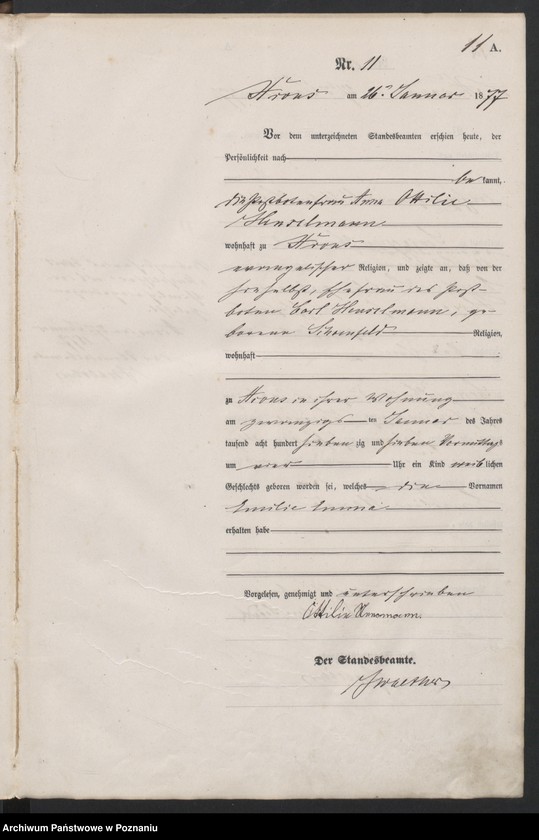 11 A.
Nr. 11
am 26n Januar 1877
Vor dem unterzeichneten Standesbeamten erschien heute, der
Persönlichkeit nach
be kannt,
die Postbotenfrau Anna Ottilie
Henselmann
wohnhaft zu
evangelischer Religion, und zeigte an, daß von der
Ehefrau des Post-
boten Carl Henselmann, ge-
borene Schönfeld Religion,
wohnhaft
zu in ihrer Wohnung
am zwanzigs ten Januar des Jahres
tausend acht hundert sieben zig und sieben Vormittags
um vier Uhr ein Kind weib lichen
Geschlechts geboren worden sei, welches die Vornamen
Emilie Emma
erhalten habe
Vorgelesen, genehmigt und unterschrieben
Ottilie
Der Standesbeamte.
Archiwum Państwowe w Poznaniu